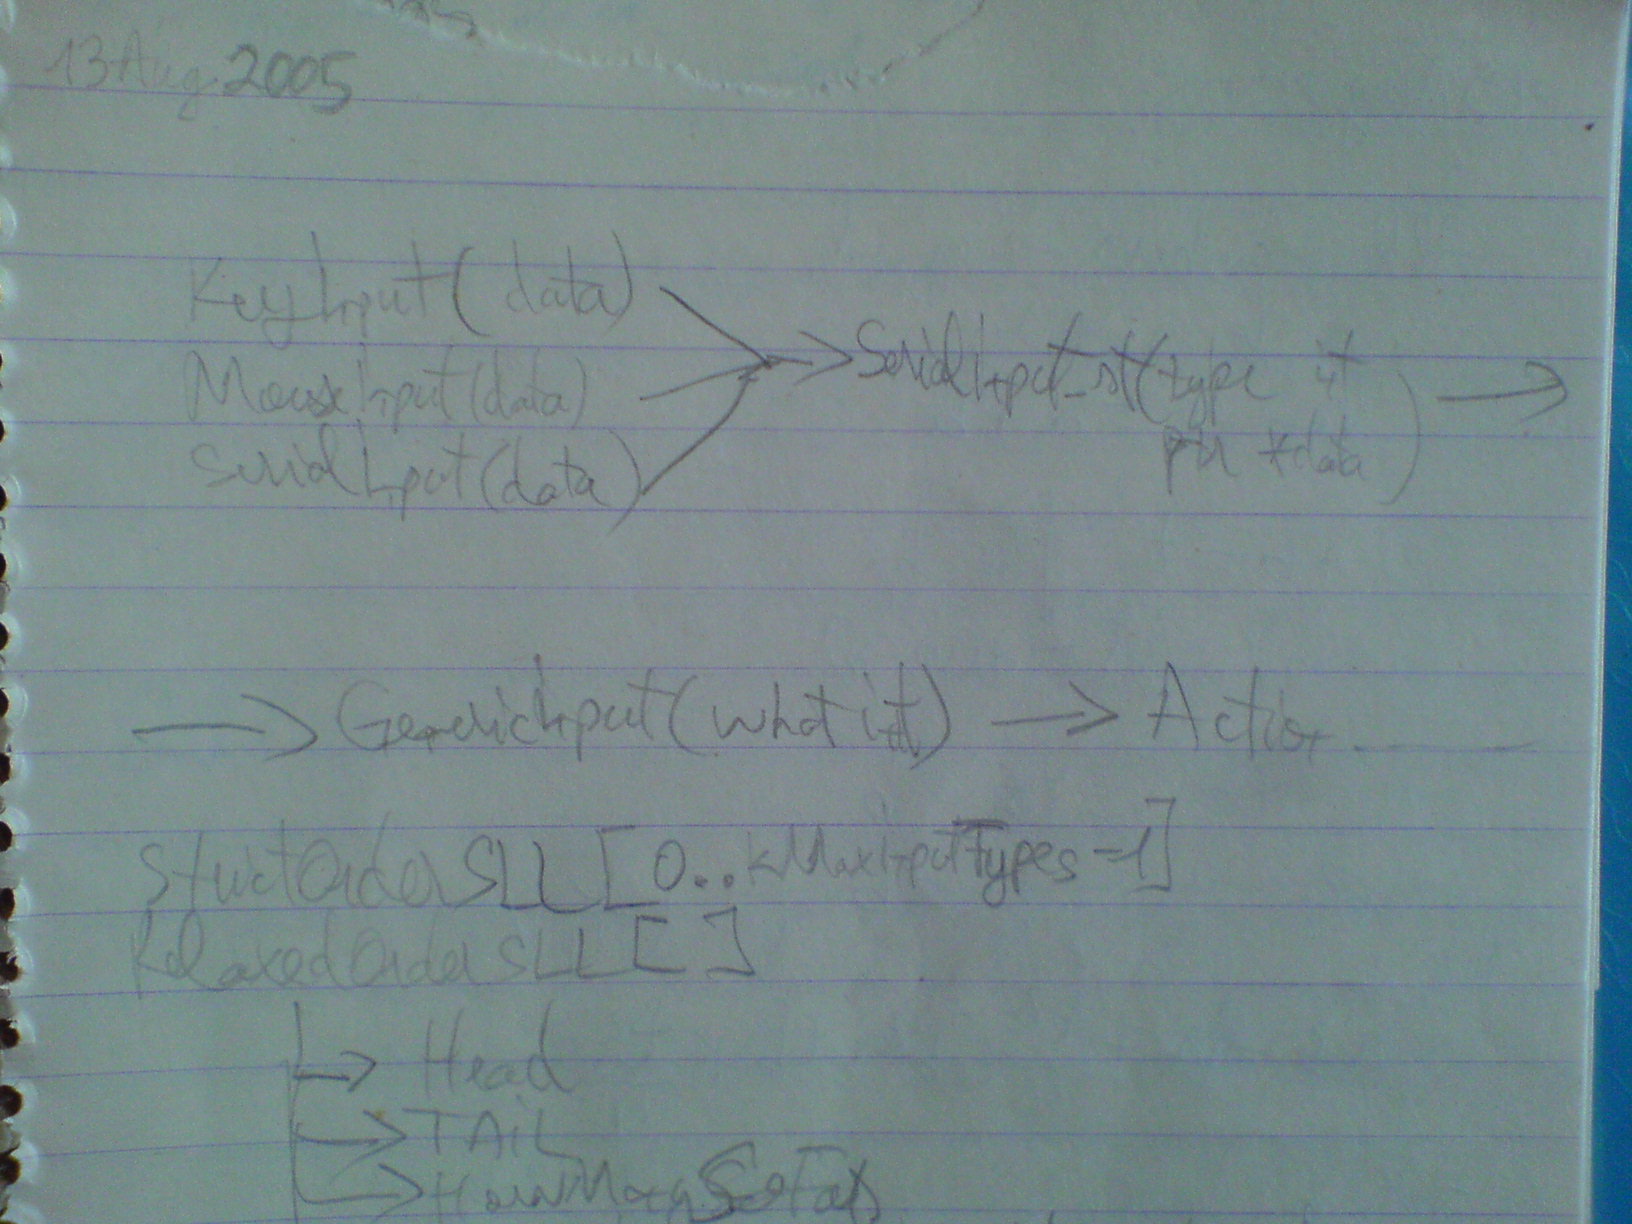 13 Aug 2005
KeyInput( data)
MouseInput(data)
SerialInput(data)
SerialInput_st(type it
ptr *data)
GenericInput(what it) → Action
StrictOrderSLL[0..kMaxInputTypes-1]
RelaxedOrderSLL[ ]
→ Head
→ TAiL
→ HowManySoFar